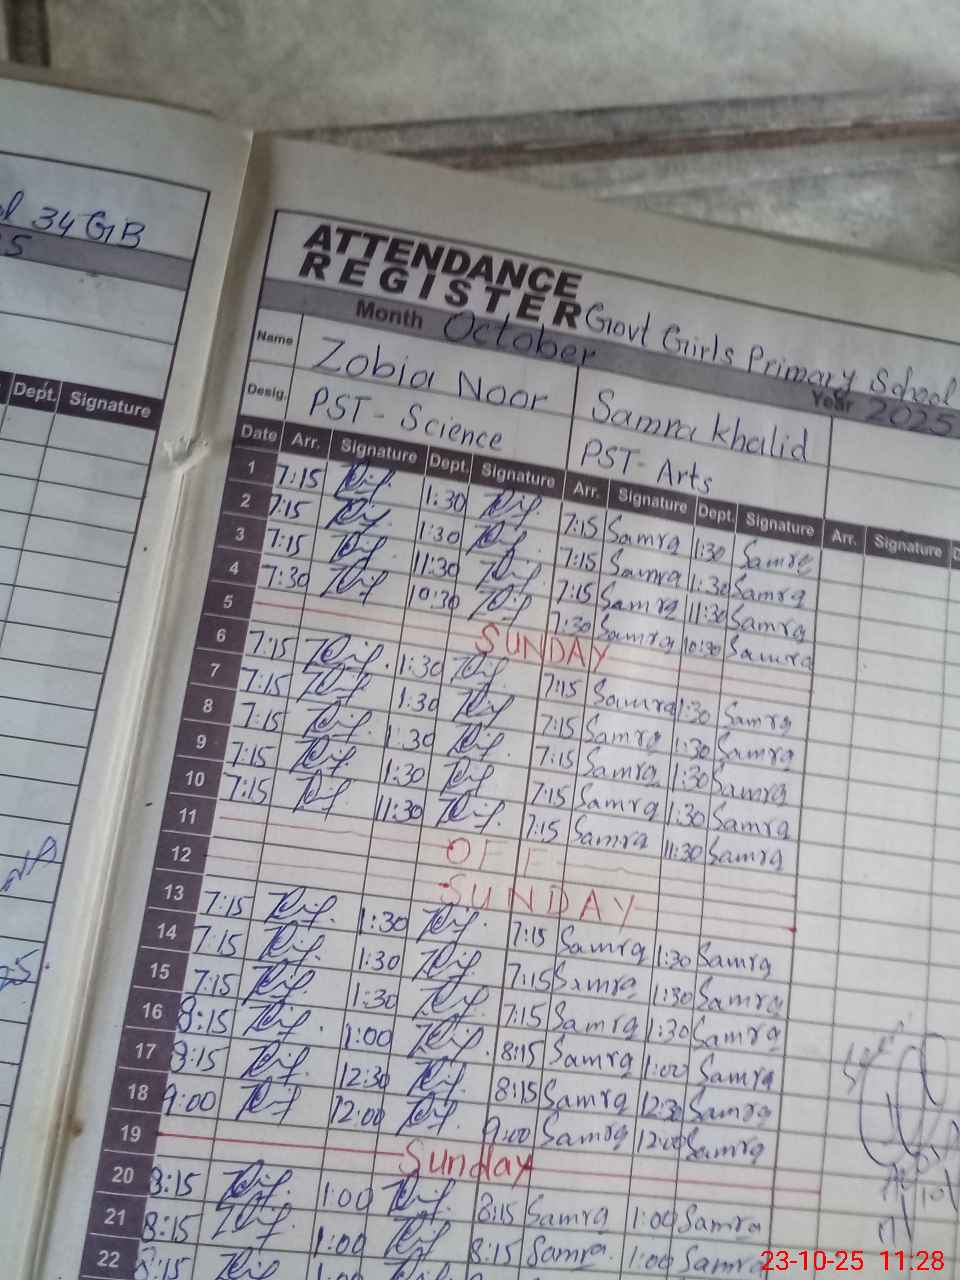 34 GB
Dept. Signature
ATTENDANCE
REGISTER Govt Girls Primary School
Month October Year 2025
Name Zobia Noor Samra Khalid
Desig. PST - Science PST - Arts
Date Arr. Signature Dept. Signature Arr. Signature Dept. Signature Arr. Signature
1 7:15 1:30 7:15 Samra 1:30 Samra
2 7:15 1:30 7:15 Samra 1:30 Samra
3 7:15 11:30 7:15 Samra 11:30 Samra
4 7:30 10:30 7:30 Samra 10:30 Samra
5 SUNDAY
6 7:15 1:30 7:15 Samra 1:30 Samra
7 7:15 1:30 7:15 Samra 1:30 Samra
8 7:15 1:30 7:15 Samra 1:30 Samra
9 7:15 1:30 7:15 Samra 1:30 Samra
10 7:15 11:30 7:15 Samra 11:30 Samra
11 OFF
12 SUNDAY
13 7:15 1:30 7:15 Samra 1:30 Samra
14 7:15 1:30 7:15 Samra 1:30 Samra
15 7:15 1:30 7:15 Samra 1:30 Samra
16 8:15 1:00 8:15 Samra 1:00 Samra
17 8:15 12:30 8:15 Samra 12:30 Samra
18 9:00 12:00 9:00 Samra 12:00 Samra
19 Sunday
20 8:15 1:00 8:15 Samra 1:00 Samra
21 8:15 1:00 8:15 Samra 1:00 Samra
22 8:15
23-10-25 11:28